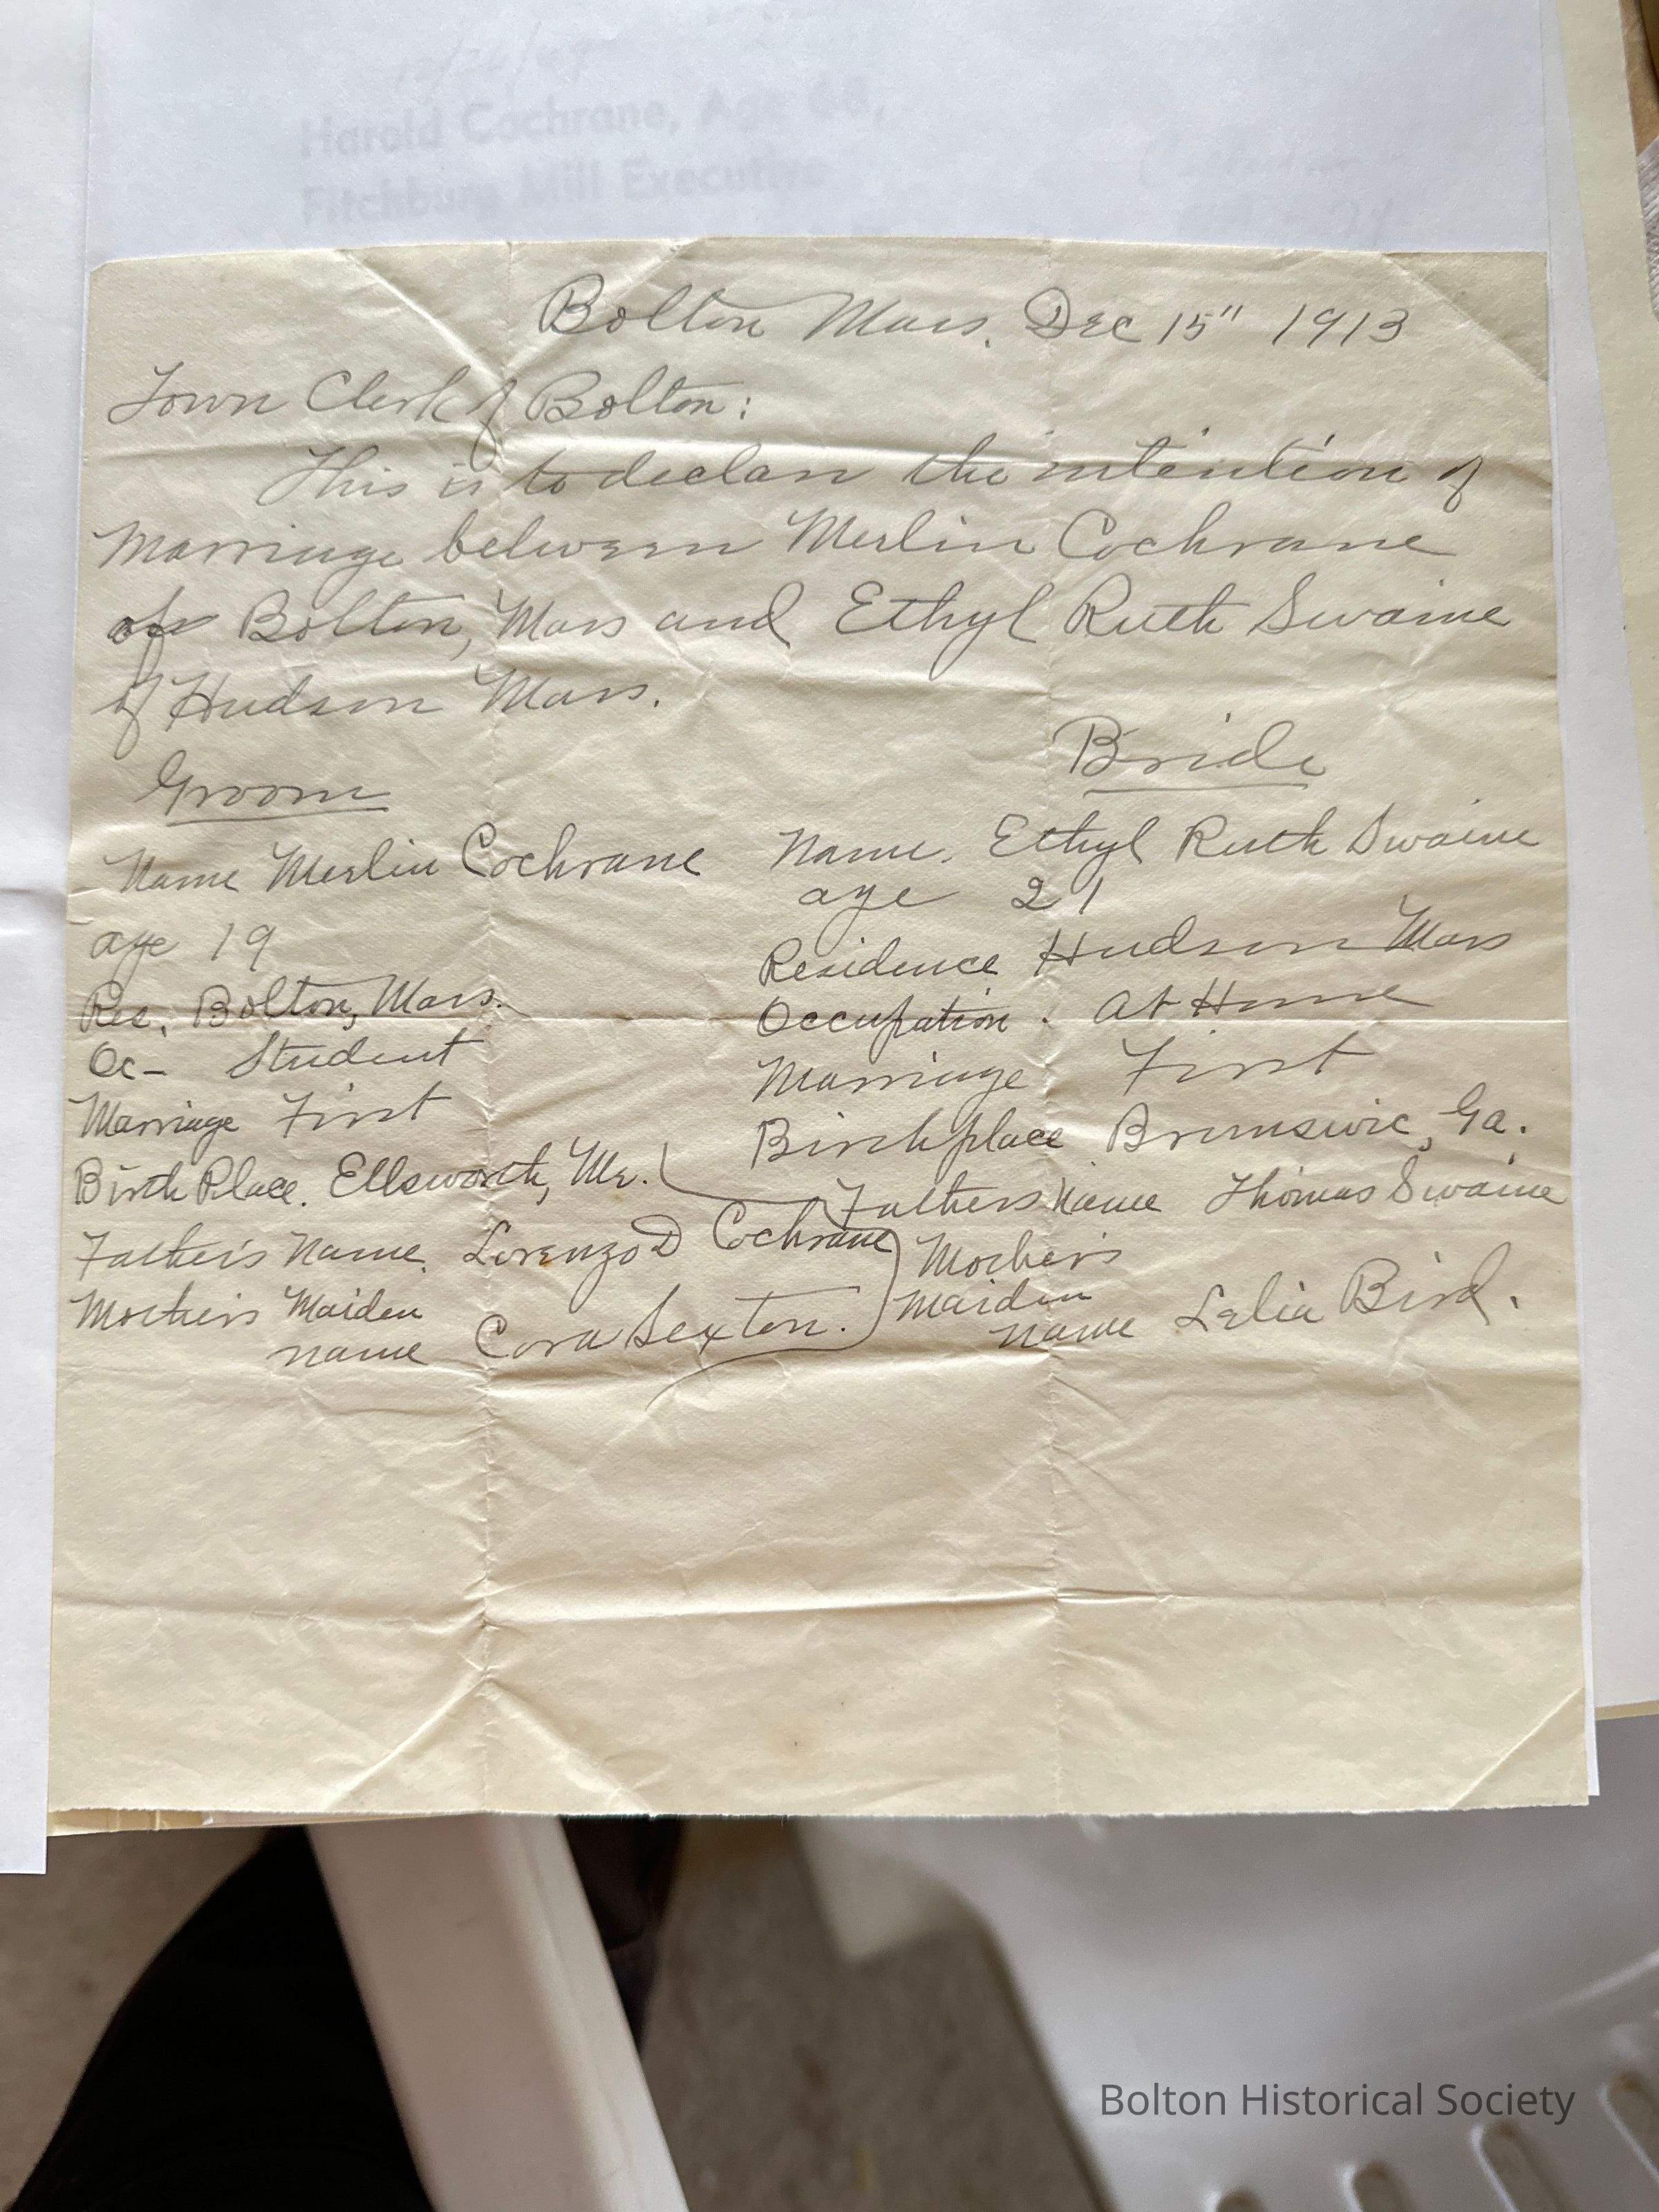 Harold Cochrane, Age 68,
Fitchburg Mill Executive
Bolton Mass. Dec 15" 1913
Town Clerk of Bolton:
This is to declare the intention of
Marriage between Merlin Cochrane
of Bolton, Mass and Ethyl Ruth Swaine
of Hudson Mass.
Groom
Name Merlin Cochrane
age 19
Res. Bolton, Mass.
Oc- Student
Marriage First
Birth Place. Ellsworth, Me.
Father's Name. Lorenzo D Cochrane
Mother's Maiden
name Cora Sexton.
Bride
Name. Ethyl Ruth Swaine
age 21
Residence Hudson Mass
Occupation. At Home
Marriage First
Birthplace Brunswic, Ga.
Fathers Name Thomas Swaine
Mother's
Maiden
name Lelia Bird.
Bolton Historical Society